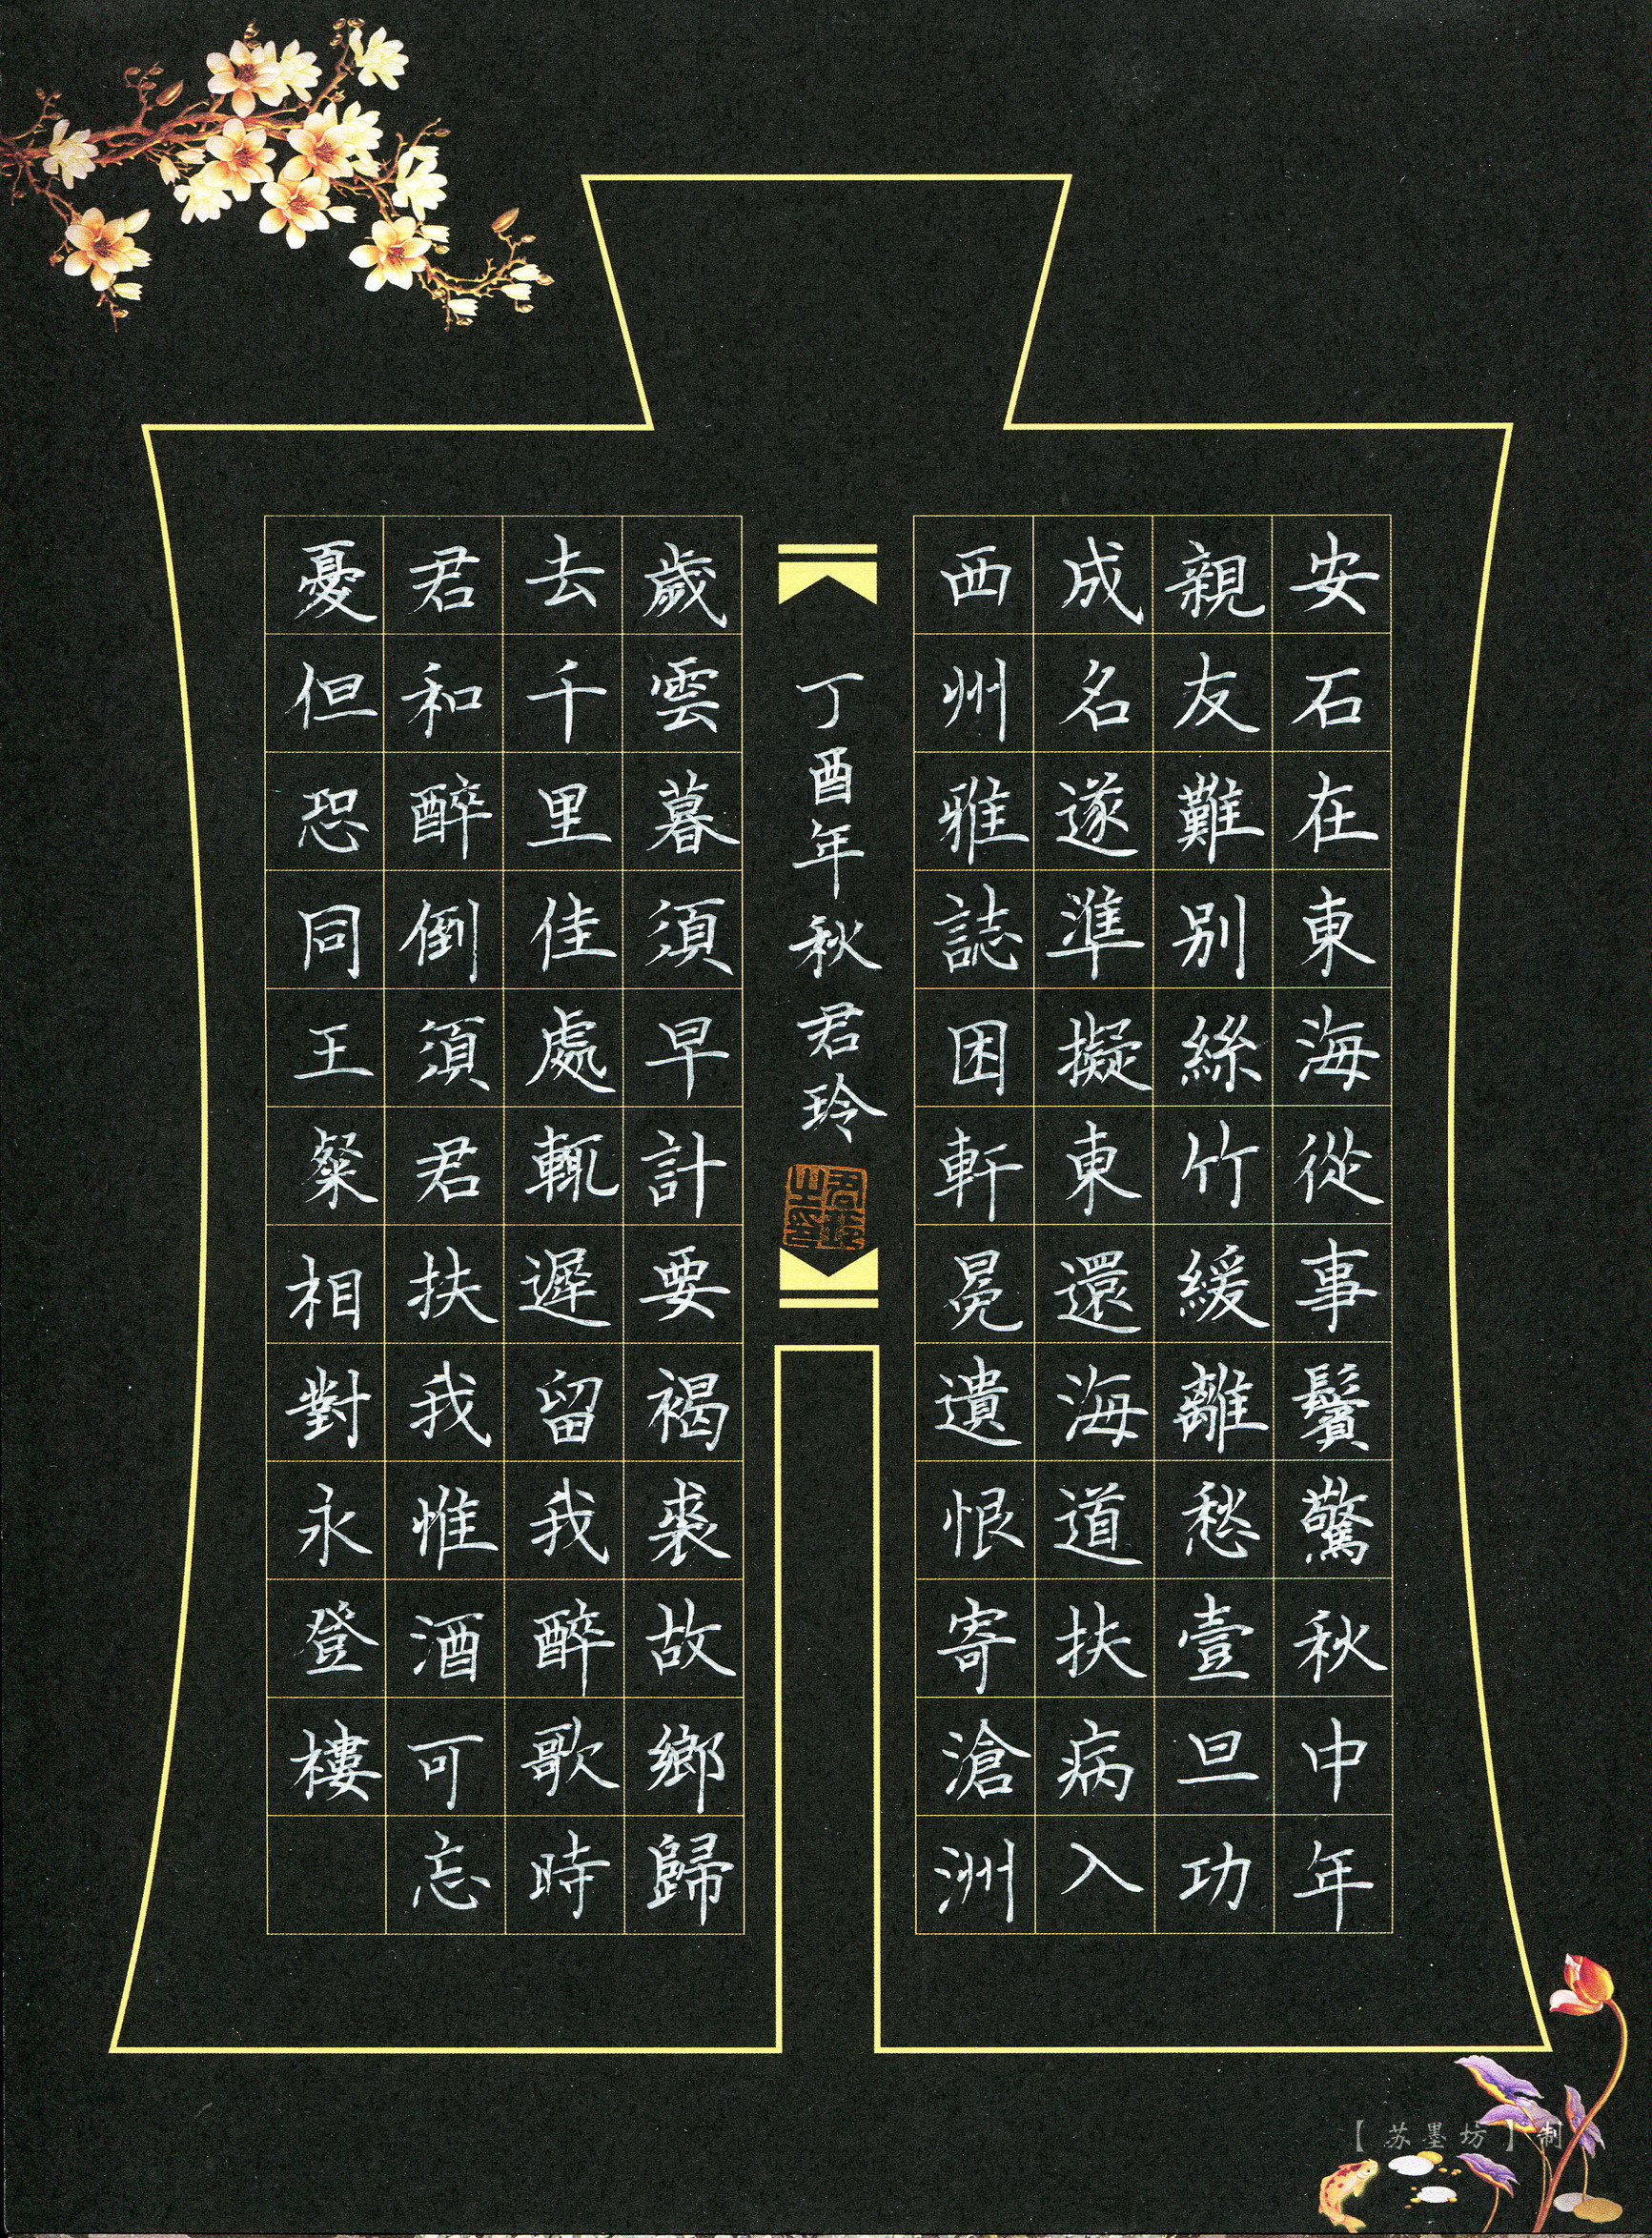 安石在東海從事鬢驚秋中年
親友難別絲竹緩離愁壹旦功
成名遂準擬東還海道扶病入
西州雅誌困軒冕遺恨寄滄洲
丁酉年秋君玲
君玲之印
歲雲暮須早計要褐裘故鄉歸
去千里佳處輒遲留我醉歌時
君和醉倒須君扶我惟酒可忘
憂但恐同王粲相對永登樓
【苏墨坊】制